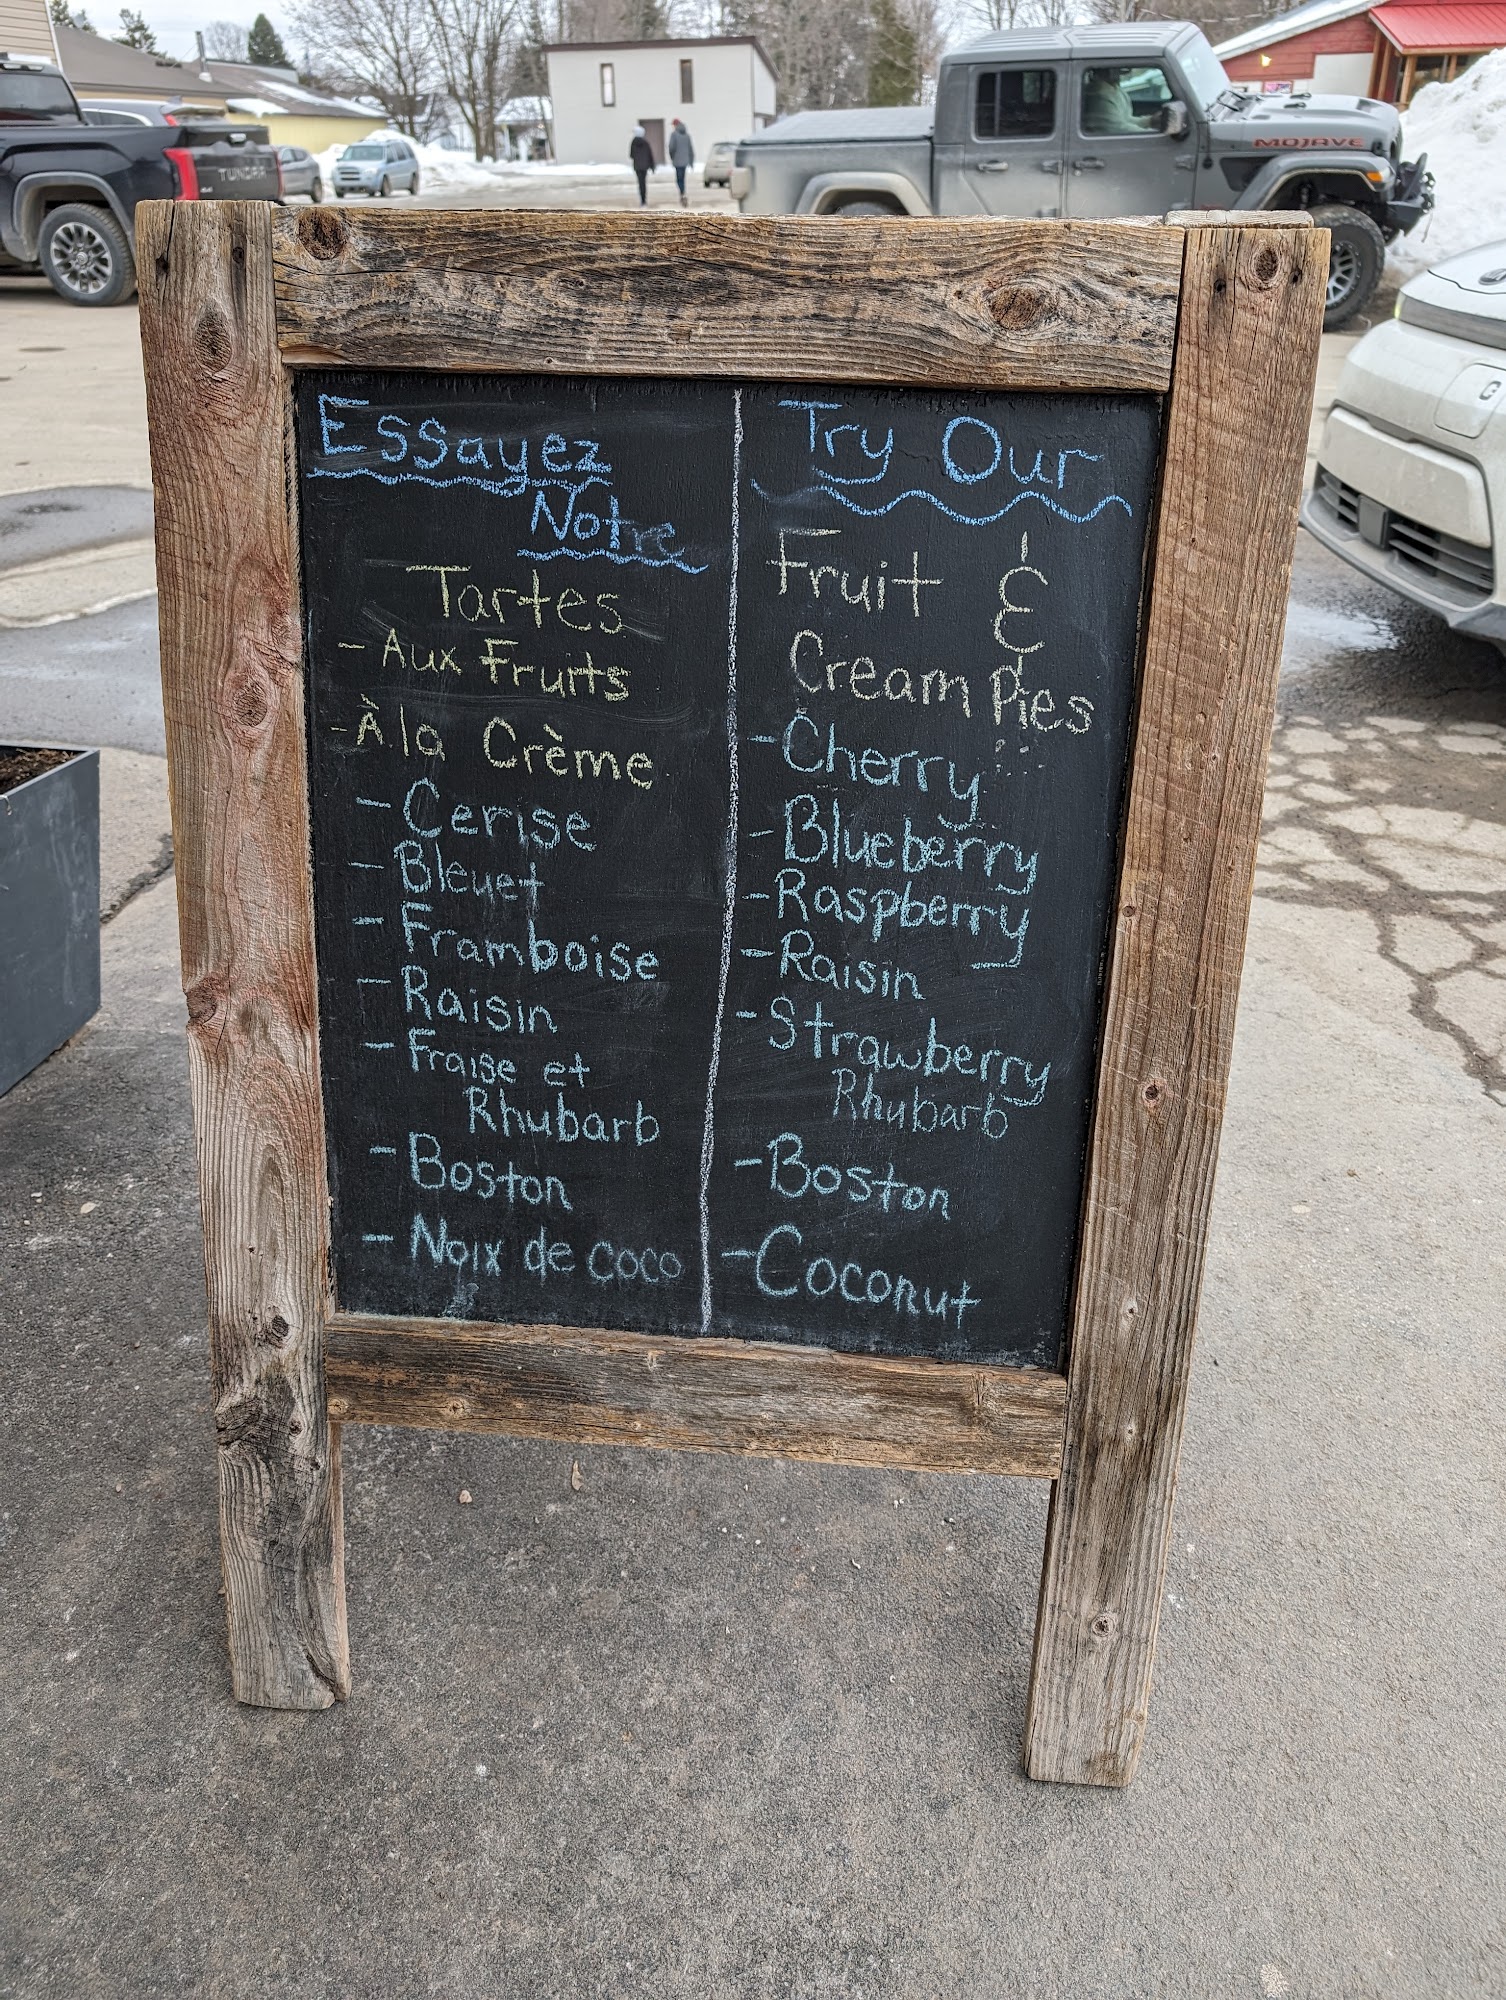 TUNDRA
MOJAVE
Essayez
Notre
Tartes
- Aux Fruits
- À la Crème
- Cerise
- Bleuet
- Framboise
- Raisin
- Fraise et
Rhubarb
- Boston
- Noix de coco
Try Our
Fruit &
Cream Pies
- Cherry
- Blueberry
- Raspberry
- Raisin
- Strawberry
Rhubarb
- Boston
- Coconut